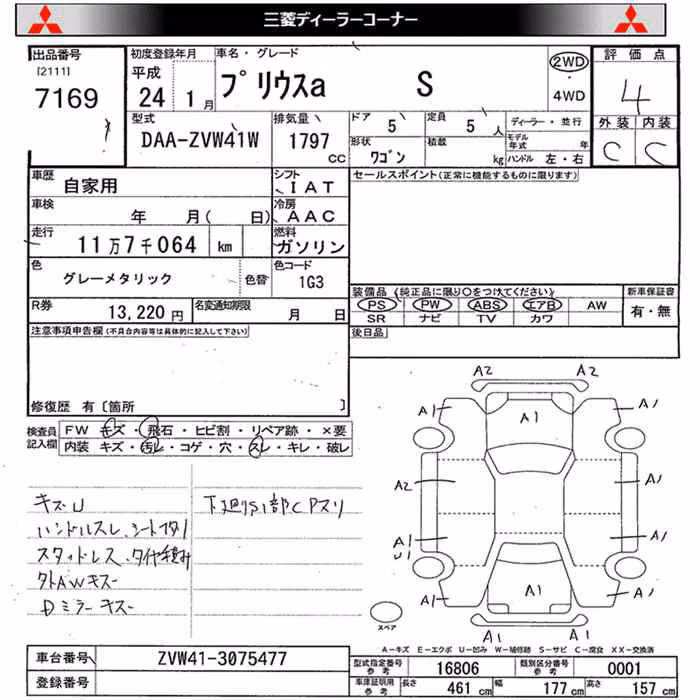 三菱ディーラーコーナー
出品番号
[2111]
7169
初度登録年月
平成
24 1月
車名・グレード
プリウスa S
2WD
4WD
評価点
4
外装 内装
C C
型式
DAA-ZVW41W
排気量
1797
CC
ドア 5
定員 5人
形状
ワゴン
積載
kg
ディーラー・並行
モデル年式 年
ハンドル 左・右
車歴
自家用
シフト
IAT
車検
年 月( 日)
冷房
AAC
走行
11万7千064 km
燃料
ガソリン
色
グレーメタリック
色替
色コード
1G3
R券
13,220円
名変通知期限
月 日
セールスポイント(正常に機能するものに限ります)
装備品 (純正品に限り〇をつけてください)
新車保証書
PS PW ABS エアB AW
SR ナビ TV カワ
有・無
後日品
注意事項申告欄(不具合内容等は具体的に記入して下さい)
修復歴 有〔箇所 〕
検査員記入欄
FW キズ・飛石・ヒビ割・リペア跡・×要
内装 キズ・汚レ・コゲ・穴・スレ・キレ・破レ
キズU
ハンドルスレ、シート
スタットレス、タイヤ積み
外AWキズー
Dミラーキズー
下廻り 部C
A2 A2
A1 A1 A1
A2 A1
A1 A1
U1
A1 A1 A1
A1 A1
スペア
A-キズ E-エクボ U-凹み W-補修跡 S-サビ C-腐食 XX-交換済
車台番号
ZVW41-3075477
登録番号
型式指定番号 参考
16806
類別区分番号 参考
0001
車庫証明用 参考
長さ 461 cm
幅 177 cm
高さ 157 cm